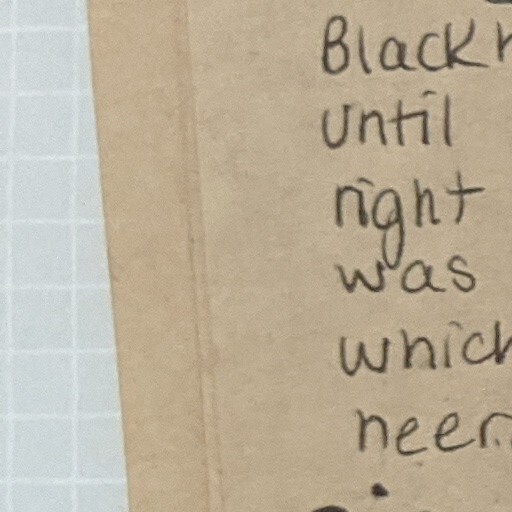 Black
until
right
was
which
neer